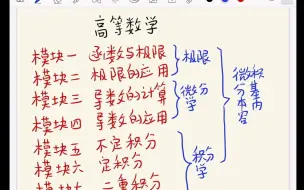 高等数学
模块一 函数与极限
模块二 极限的应用
模块三 导数的计算
模块四 导数的应用
模块五 不定积分
模块六 定积分
二重积分
极限
微分学
积分学
微积分基本内容